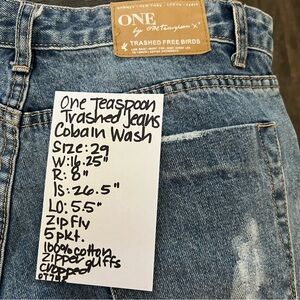 SYDNEY - NEW YORK - TOKYO - PARIS
ONE
by one teaspoon "x"
TRASHED FREE BIRDS
One Teaspoon
Trashed Jeans
Cobain Wash
Size: 29
W: 16.25"
R: 8"
IS: 26.5"
LO: 5.5"
Zip Fly
5 pkt.
100% cotton
Zipper cuffs
Cropped